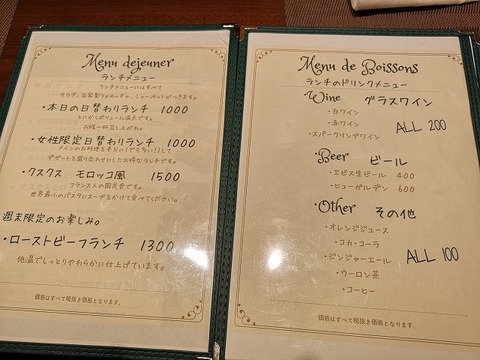 Menu dejeuner
ランチメニュー
ランチメニューにはすべて
サラダ、自家製フォカッチャ、シャーベットがつきます。
・本日の日替わりランチ 1000
とにかくボリューム満点です。
お腹一杯召し上がれ。
・女性限定日替わりランチ 1000
メインのお料理を半分にしてもちいして
デザートと盛り合わせにしたお得なランチです。
・クスクス モロッコ風 1500
フランス人の国民食です。
世界最小のパスタにスープをかけて食べてください。
週末限定のお楽しみ。
・ローストビーフランチ 1300
低温でしっとりやわらかに仕上げています。
価格はすべて税抜き価格となります。
Menu de Boissons
ランチのドリンクメニュー
Wine グラスワイン
・白ワイン
・赤ワイン
・スパークリングワイン
ALL 200
Beer ビール
・エビス生ビール 400
・ヒューガルデン 600
Other その他
・オレンジジュース
・コカ・コーラ
・ジンジャーエール
・ウーロン茶
・コーヒー
ALL 100
価格はすべて税抜き価格となります。